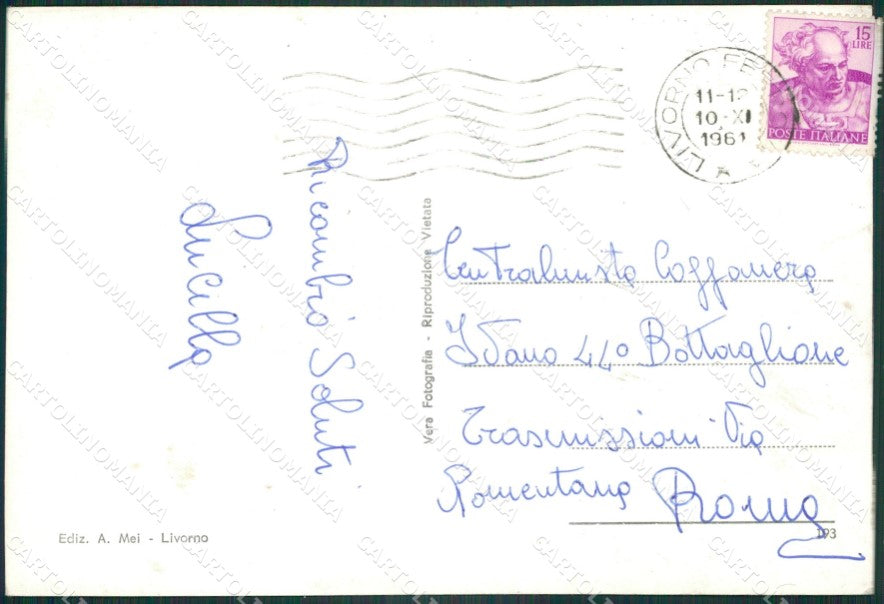 15
LIRE
POSTE ITALIANE
LIVORNO FE
11-12
10·XI
1961
Ricambio Saluti
Lucilla
Vera Fotografia - Riproduzione Vietata
Centralinista Caffanera
Idano 44° Battaglione
Trasmissioni Via
Nomentana Roma
Ediz. A. Mei - Livorno
193
CARTOLINOMANIA